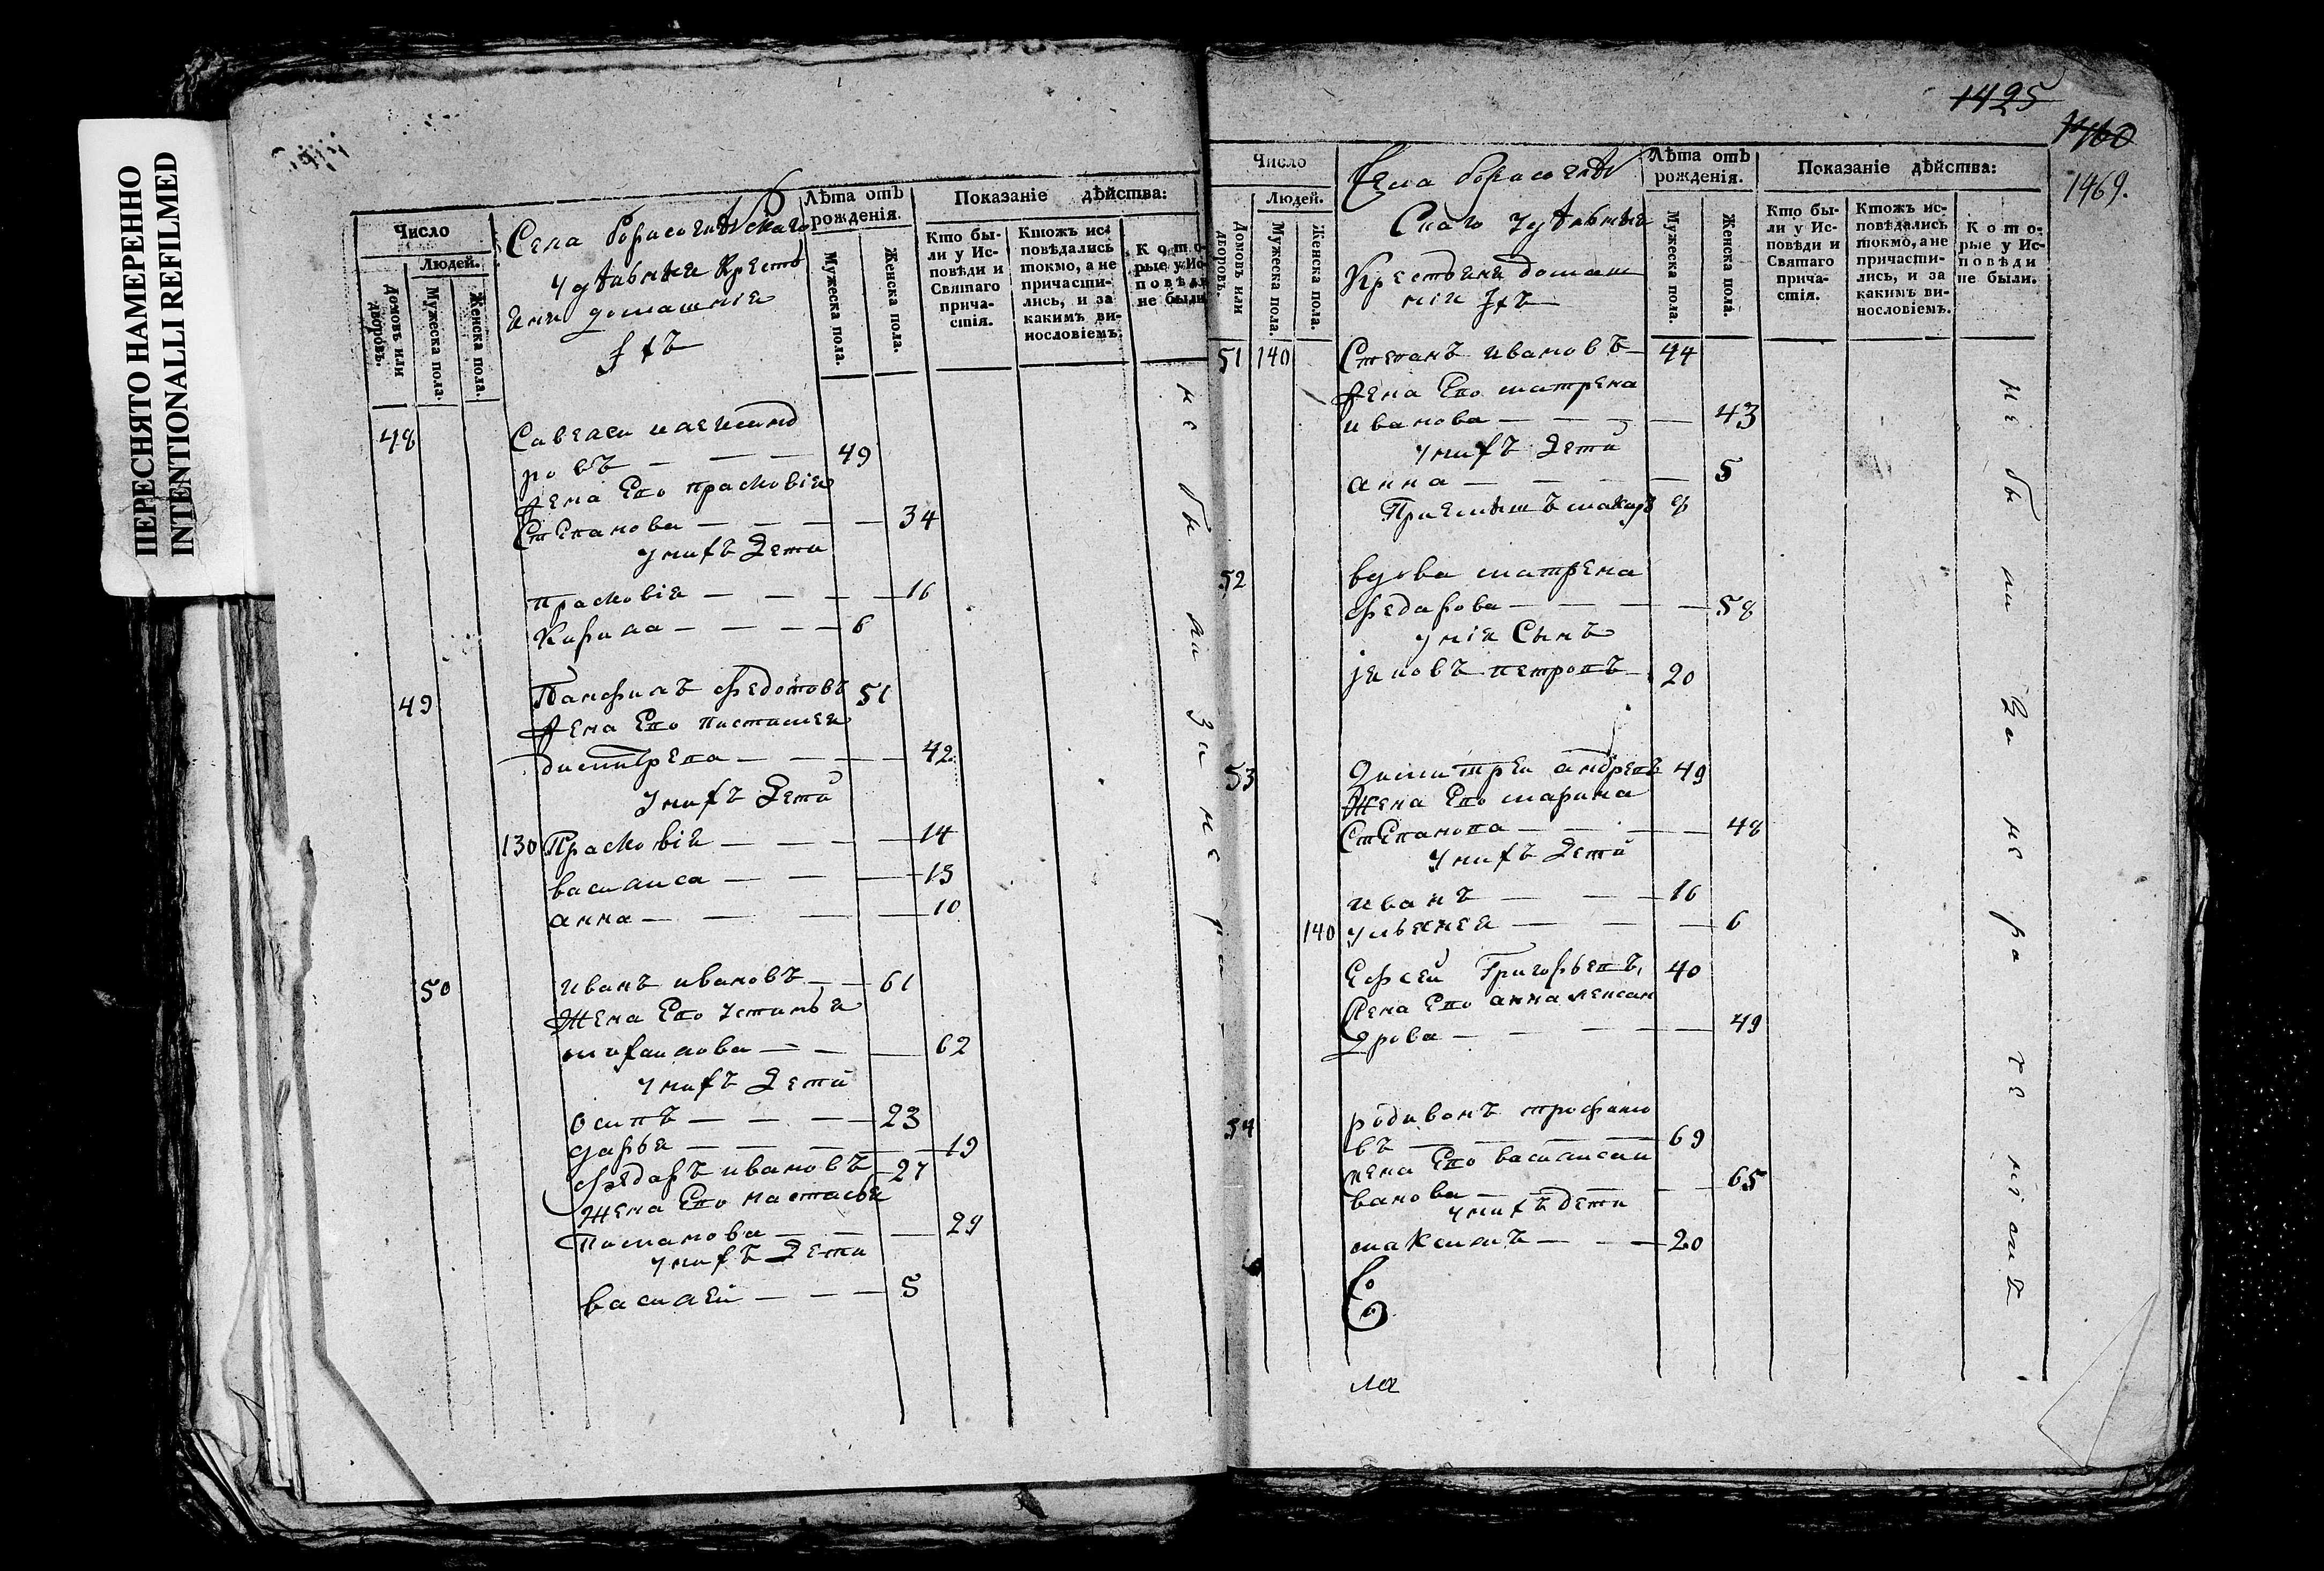 ПЕРЕСНЯТО НАМЕРЕННО
INTENTIONALLI REFILMED
Число
Людей.
Домовъ или дворовъ.
Мужеска пола.
Женска пола.
Села борисоглѣбскаго
удѣльныя Кресть
яни домашнія
ихъ
Лѣта отъ
рожденія.
Мужеска пола.
Женска пола.
Показаніе дѣйства:
Кто бы-
ли у Ис-
повѣди и
Святаго
прича-
стія.
Ктожъ ис-
повѣдались
токмо, а не
причасти-
лись, и за
какимъ ви-
нословіемъ.
Кото-
рые у Ис-
повѣди
не были.
48
ровъ — — — 49
жена Его прасковія
Степанова — — — 34
у нихъ дети
прасковія — — — 16
Кирила — — — 6
49 Панфилъ федотовъ 51
жена Его
— — — 42
у нихъ дети
130 Прасковія — — — 14
василиса — — —
анна — — — 10
50 иванъ ивановъ — — 61
жена Его устинья
михаилова — — — 62
у нихъ дети
осипъ — — — 23
дарья — — — 19
федаръ ивановъ — 27
жена Его настасья
— — — 29
у нихъ дети
василей — — — 5
не бы ли за не ра
1425
1460
1469.
Число
Людей.
Домовъ или дворовъ.
Мужеска пола.
Женска пола.
Села борисоглѣб
Скаго удѣльныя
Крестьяни домаш
нія ихъ
Лѣта отъ
рожденія.
Мужеска пола.
Женска пола.
Показаніе дѣйства:
Кто бы-
ли у Ис-
повѣди и
Святаго
прича-
стія.
Ктожъ ис-
повѣдались
токмо, а не
причасти-
лись, и за
какимъ ви-
нословіемъ.
Кото-
рые у Ис-
повѣди
не были.
51 140 Степанъ ивановъ — 44
жена Его матрена
иванова — — — 43
у нихъ дети
анна — — — 5
Приемышъ 8
52 вдова матрена
федарова — — — 58
у нія Сынъ
яковъ петровъ — 20
53 димитрей андревъ 49
жена Его марина
Степанова — — — 48
у нихъ дети
иванъ — — — 16
140 ульянея — — — 6
Ефсей Григорьевъ, 40
жена Его анна лексан
дрова — — — 49
54 родивонъ трофимо
въ — — — 69
жена Его василиса и
ванова — — — 65
у нихъ дети
максимъ — — — 20
Се
ла
не бы ли за не ра че ні ем ъ